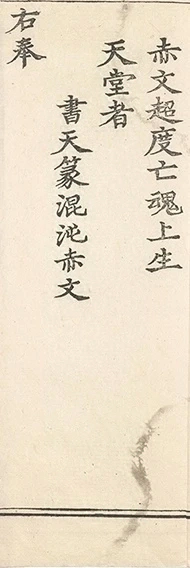 赤文超度亡魂上生
天堂者
書天篆混沌赤文
右奉